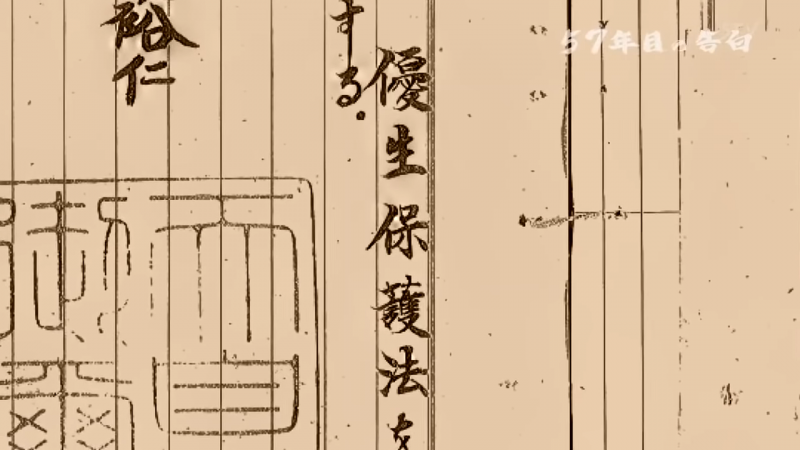 57年目の告白
優生保護法を
する。
裕仁